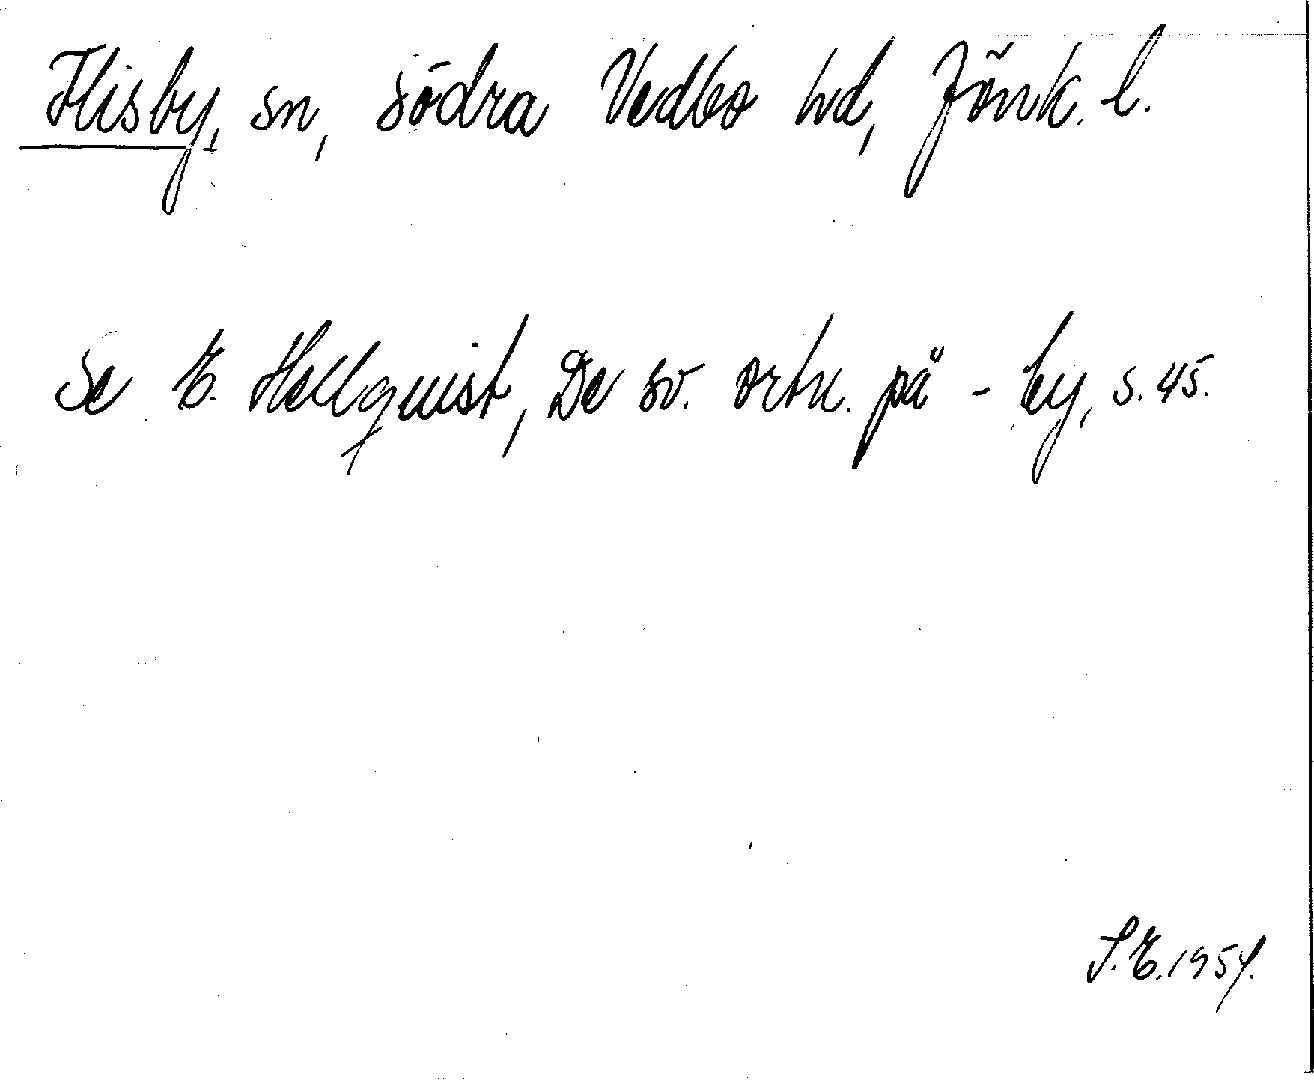 Flisby, sn, södra Vedbo hd, Jönk. l.
Se E. Hellquist, De sv. ortn. på -by, s. 45.
S.E. 1954.